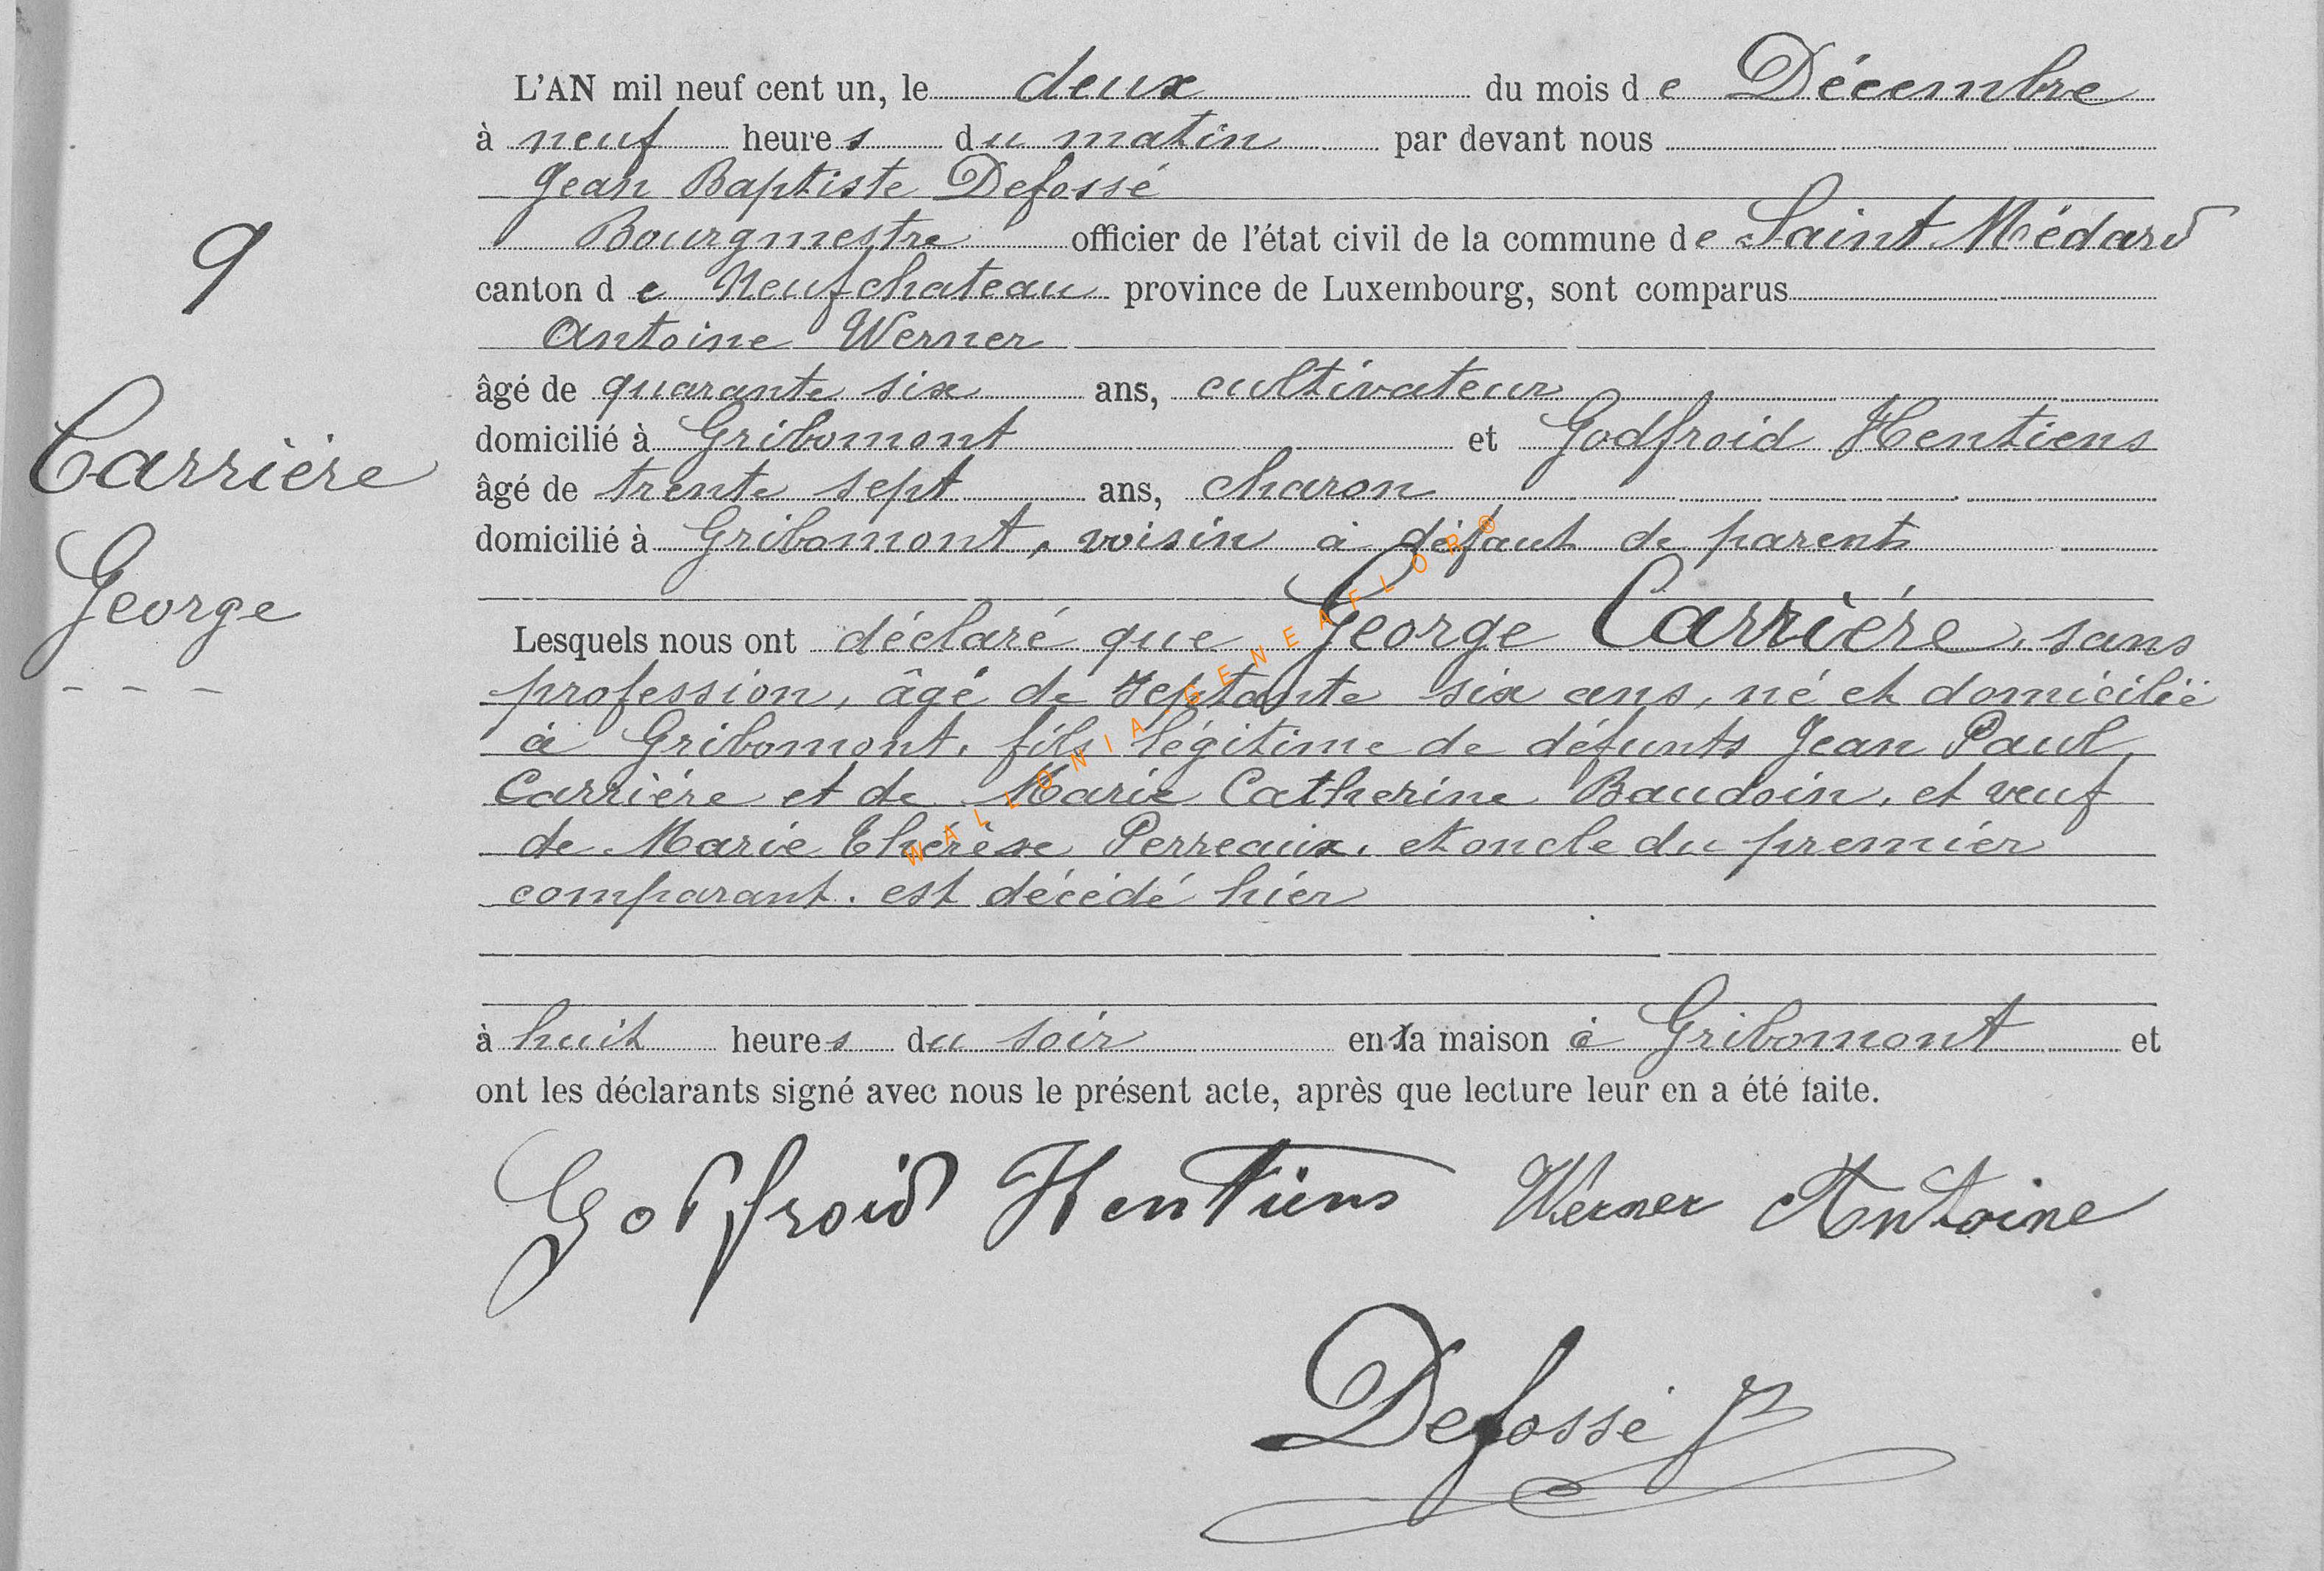 L'AN mil neuf cent un, le deux du mois de Décembre
à neuf heures du matin par devant nous
Jean Baptiste Defossé
9
Bourgmestre officier de l'état civil de la commune de Saint Médard
canton de Neufchateau province de Luxembourg, sont comparus
Antoine Werner
âgé de quarante six ans, cultivateur
domicilié à Gribomont et Godfroid Hentiens
Carrière
âgé de trente sept ans, charon
domicilié à Gribomont, voisin à défaut de parents
George
Lesquels nous ont déclaré que George Carrière, sans
profession, âgé de septante six ans, né et domicilié
à Gribomont, fils légitime de défunts Jean Paul
Carrière et de Marie Catherine Baudoin, et veuf
de Marie Thérèse Perreaux, et oncle du premier
comparant. est décédé hier
à huit heures du soir en sa maison à Gribomont et
ont les déclarants signé avec nous le présent acte, après que lecture leur en a été faite.
Godfroid Hentiens Werner Antoine
Defossé J
WALLONIA GENEAFLOR®